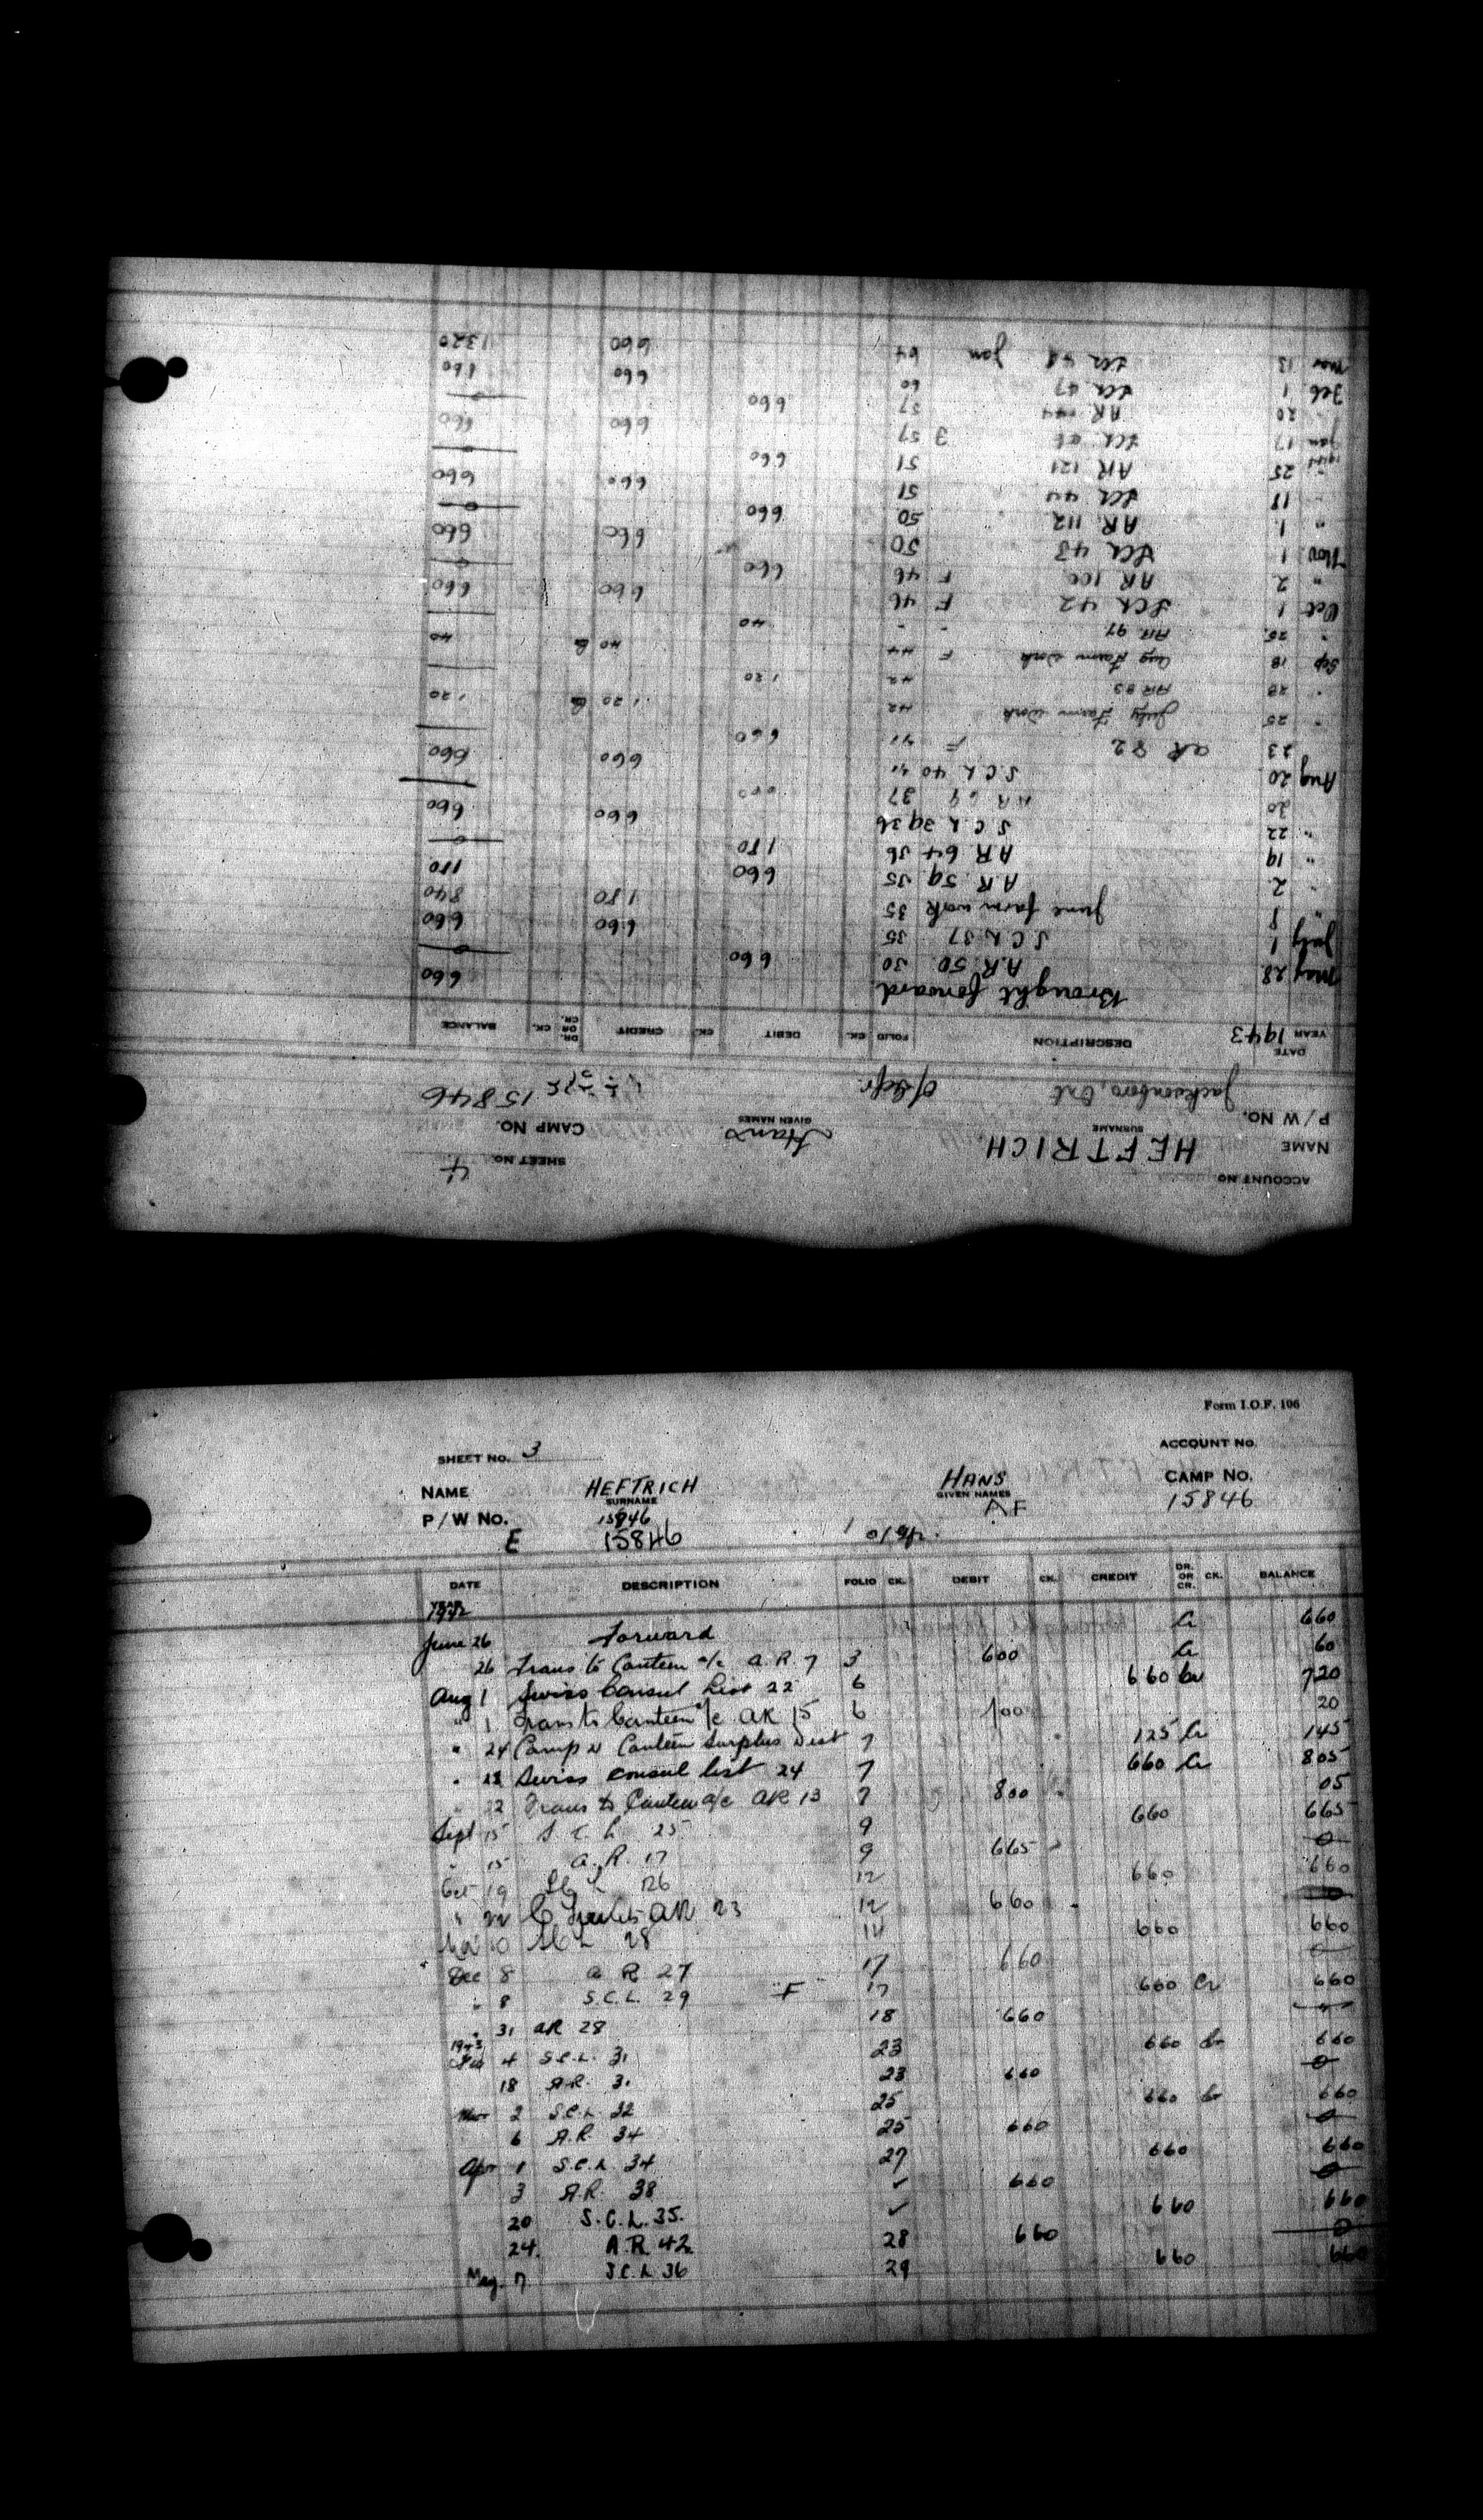 ACCOUNT NO.
SHEET NO. 4
NAME HEFTRICH Hans
SURNAME GIVEN NAMES
P/W NO. CAMP NO.
Jacksonboro, Ont O/Gefr. 15846
DATE
YEAR 1943 DESCRIPTION FOLIO CK. DEBIT CK. CREDIT DR. OR CR. CK. BALANCE
Brought forward 660
May 28 A.R. 50 30 660 0
July 1 S.C.L. 37 35 660 660
June farm work 35 180 840
" 2 A.R. 59 35 660 180
" 19 A.R. 64 36 180 0
" 22 S.C.L. 39 36 660 660
30 A.R. 69 37
Aug 20 S.C.L. 40 41 660 660
23 A.R. 82 F 41 660
" 25 July Farm Work 42 1 20 Cr 1 20
" 28 AR 83 42 1 20
Sep 18 Aug Farm Work F 44 40 Cr 40
" 25 AR 97 - - 40
Oct 1 SCL 42 F 46 660 660
" 2 AR 100 F 46 660 0
Nov 1 SCL 43 50 660 660
" 1 AR 112 50 660 0
18 SCL 44 51 660 660
" 25 AR 121 51 660 0
1944
Jan 17 SCL 46 57 660 660
" 20 AR 144 57 660 0
Feb 1 SCL 47 60 660 660
Mar 13 SCL 48 Jan 64 660 1320
Form I.O.F. 106
SHEET NO. 3 ACCOUNT NO.
NAME HEFTRICH HANS CAMP NO.
SURNAME GIVEN NAMES
P/W NO. 15846 AF 15846
E 15846 O/Gfr.
DATE DESCRIPTION FOLIO CK. DEBIT CK. CREDIT DR. OR CR. CK. BALANCE
YEAR
1942
June 26 Forward Cr 660
26 Trans to Canteen a/c A.R. 7 3 600 Cr 60
Aug 1 Swiss Consul List 22 6 660 Cr 720
" 1 Trans to Canteen a/c AR 15 6 700 20
" 24 Camp Canteen Surplus Dist 7 125 Cr 145
" Swiss Consul list 24 7 660 Cr 805
" 22 Trans to Canteen a/c AR 13 7 800 05
Sept 15 S.C.L. 25 9 660 665
" 15 A.R. 17 9 665 0
Oct 19 SCL 26 12 660 660
" 22 AR 23 12 660
Nov 10 SCL 28 14 660 660
Dec 8 A R 27 17 660 0
" 8 S.C.L. 29 F 17 660 Cr 660
" 31 AR 28 18 660
1943
4 S.C.L. 31 23 660 Cr 660
18 A.R. 31 23 660 0
Mar 2 S.C.L. 32 25 660 Cr 660
6 A.R. 34 25 660 0
Apr 1 S.C.L. 34 27 660 660
3 A.R. 38 ✓ 660 0
20 S.C.L. 35. ✓ 660 660
24. A.R. 42 28 660 0
May. 7 S.C.L 36 29 660 660